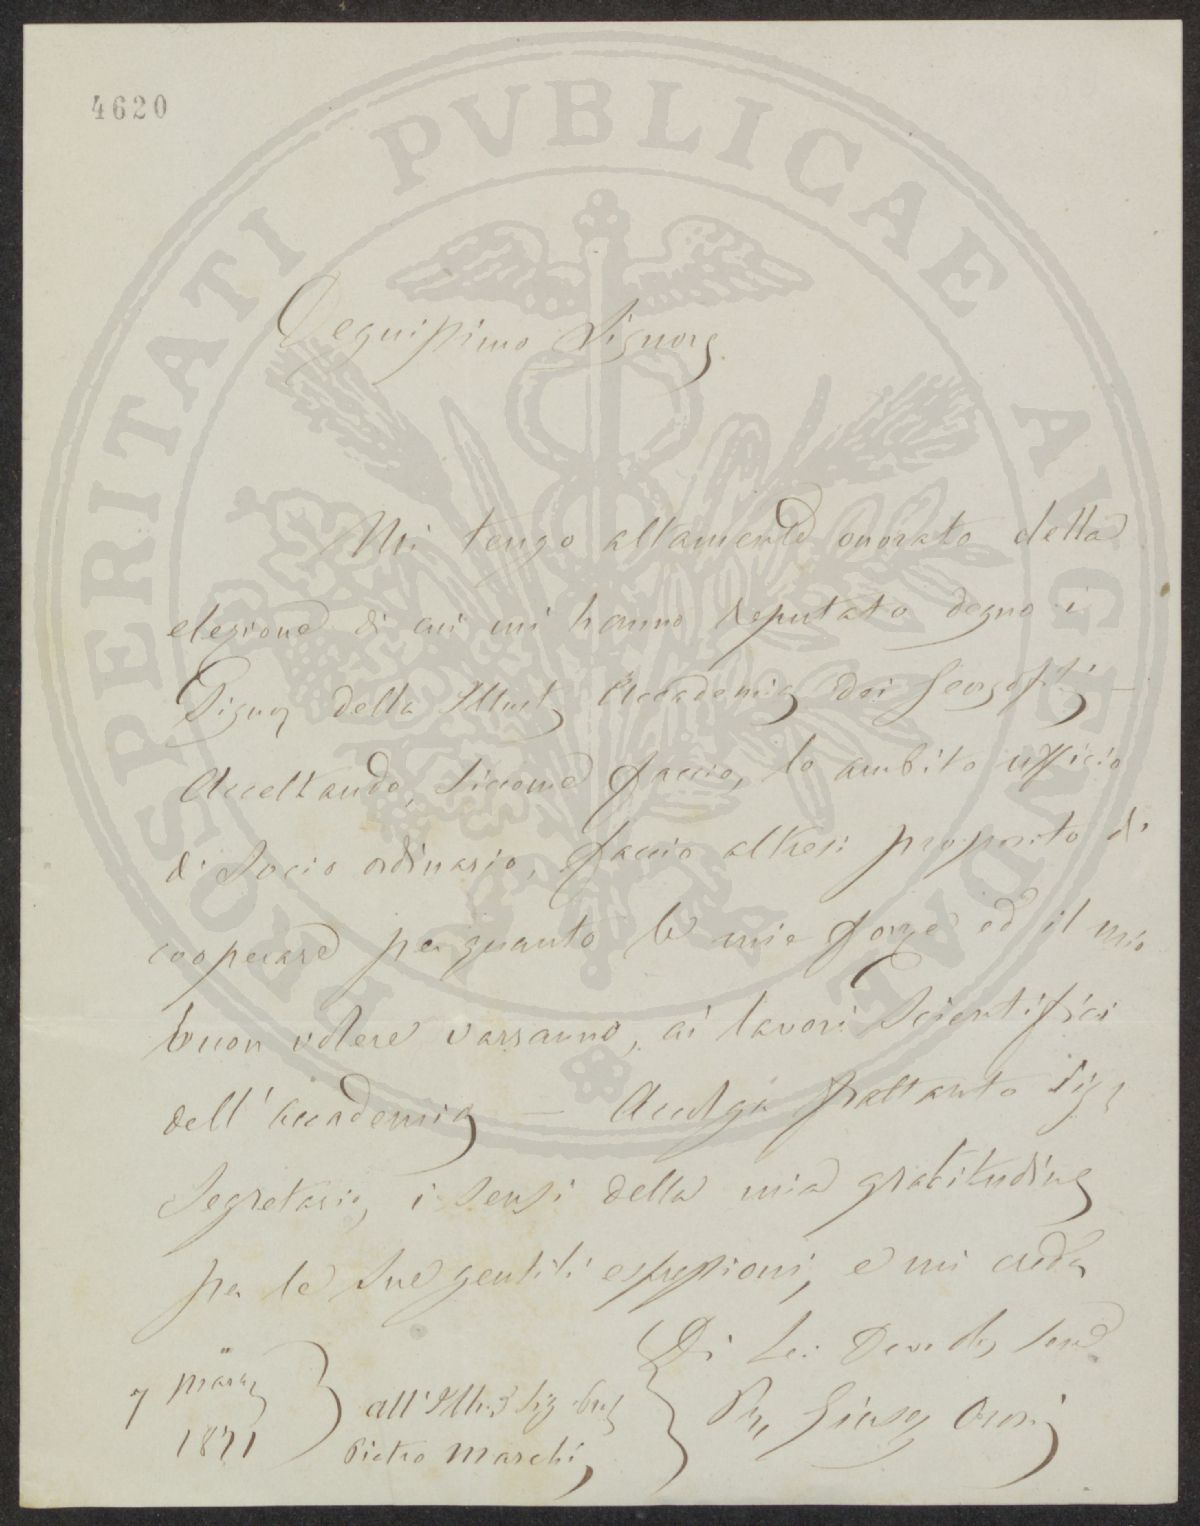 4620
PROSPERITATI PVBLICAE AVGENDAE
Degnissimo Signore
Mi tengo altamente onorato della
elezione di cui mi hanno reputato degno i
Signori della Illust. Accademia dei Georgofili —
Accettando, siccome faccio, lo ambito ufficio
di Socio ordinario, faccio altresì proposito di
cooperare per quanto le mie forze ed il mio
buon volere varranno, ai lavori Scientifici
dell'accademia — Accolga frattanto Sig.
Segretario, i sensi della mia gratitudine
per le sue gentili espressioni, e mi creda
Di Lei Dev
7 marzo
1871
all' Sig.
Pietro Marchi
Orosi